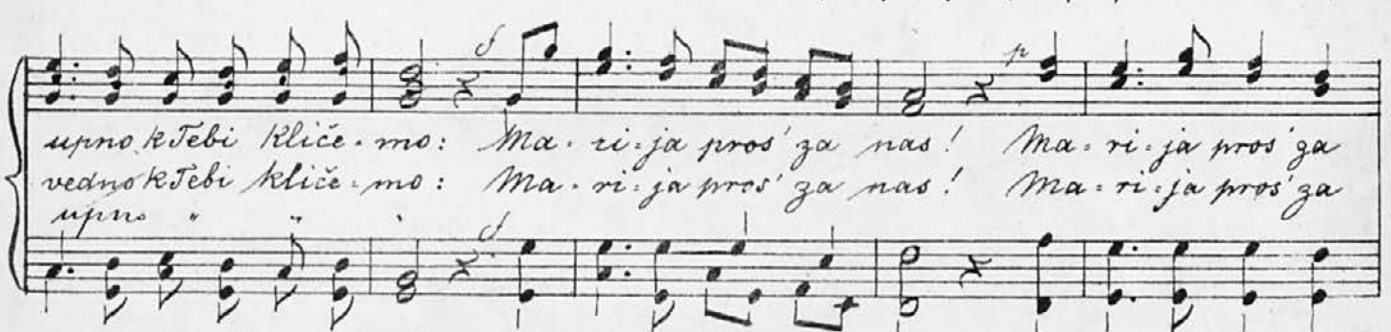 f p
upno k Tebi kliče-mo: Ma-ri-ja pros' za nas! Ma-ri-ja pros' za
vedno k Tebi kliče-mo: Ma-ri-ja pros' za nas! Ma-ri-ja pros' za
upno " "
f